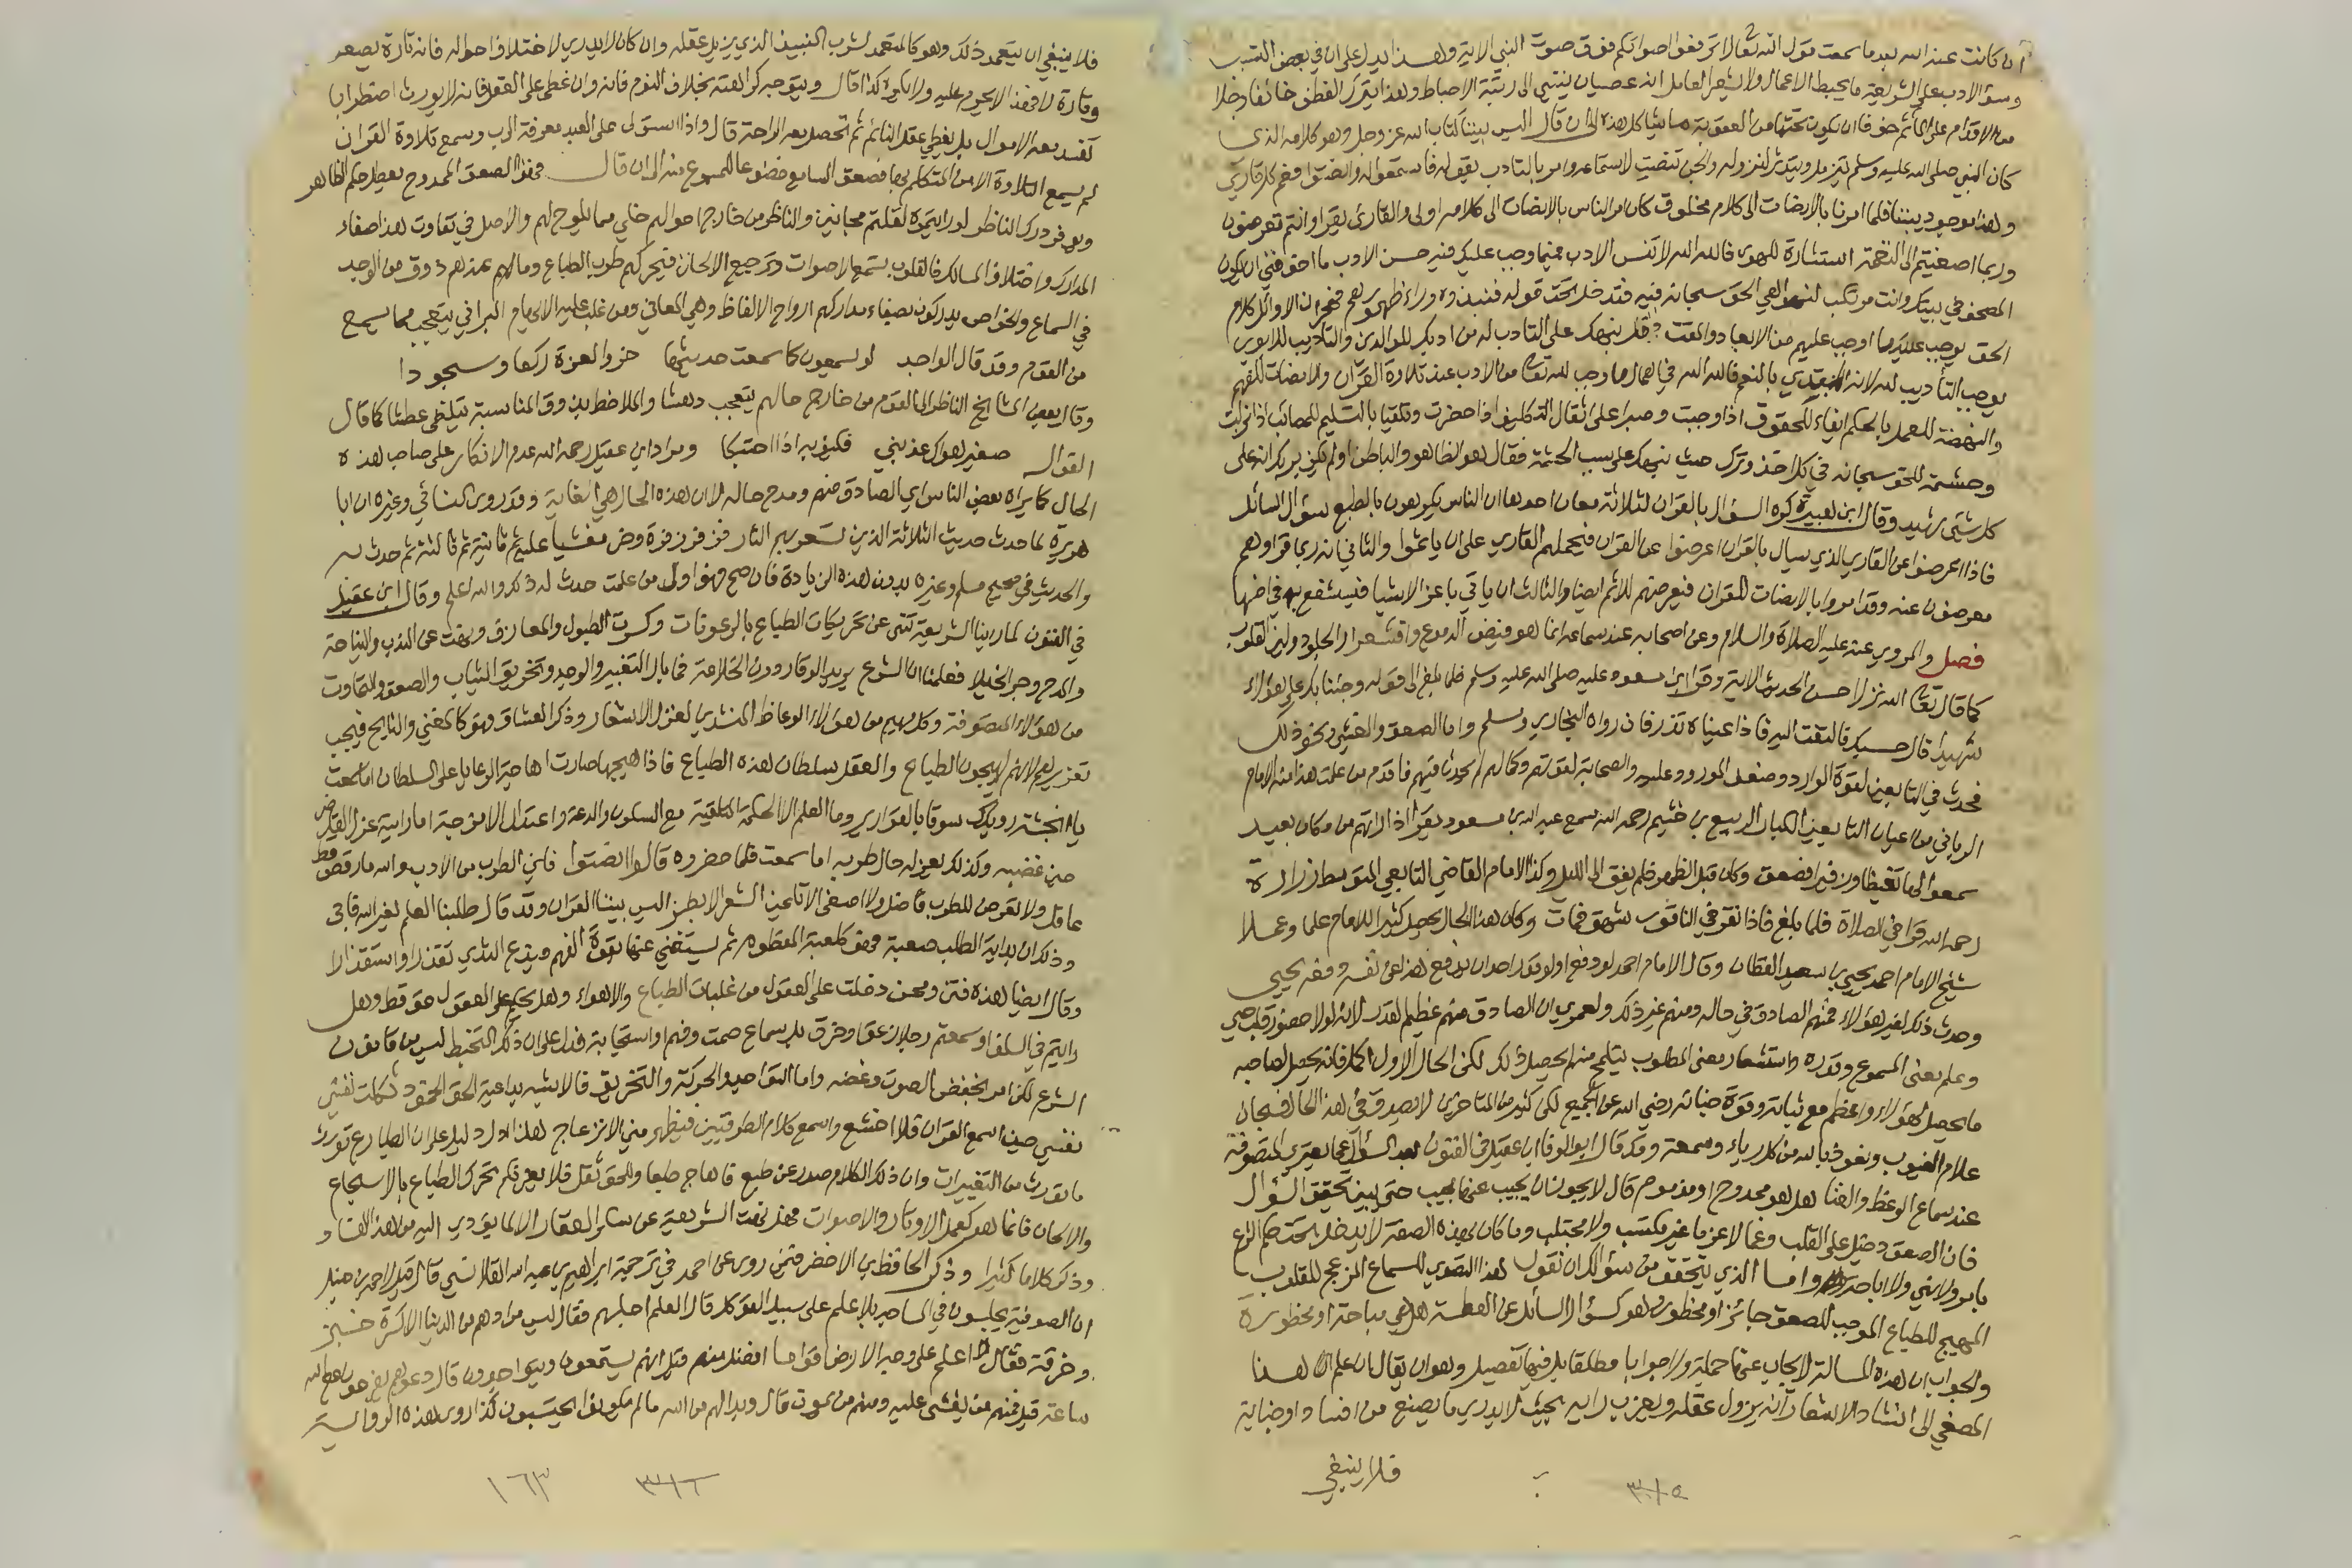 ان كانت عند الله بعد ما سمعت قول الله تعالى لا ترفعوا اصواتكم فوق صوت النبي الآية وهذا يدل على ان في بعض التسبب
وسوء الادب على الشريعة ما يحبط الاعمال ولا يشعر العامل انه عصيان ينتهي الى رتبة الاحباط وهذا يترك الفطن خائفا وجلا
من الاقدام على المأثم خوفا ان يكون تحتها من العقوبة ما يشاكل هذه الى ان قال اليس بيننا كتاب الله عز وجل وهو كلامه الذي
كان النبي صلى الله عليه وسلم يتزمل ويتدثر لنزوله والجن تنصت لاستماعه وامر بالتادب بقوله فاستمعوا له وانصتوا فعم كل قارئ
وهذا موجود بيننا فلما امرنا بالانصات الى كلام مخلوق كان امر الناس بالانصات الى كلامه اولى والقارئ يقرأ وانتم تعرضون
وربما اصغيتم الى النغمة استثارة للهوى فالله الله لا تنس الادب فيما وجب عليك فيه حسن الادب ما اخوفني ان يكون
المصحف في بيتك وانت مرتكب لنواهي الحق سبحانه فيه فتدخل تحت قوله فنبذوه وراء ظهورهم فهجران الاوائل كلام
الحق يوجب عليك ما اوجب عليهم من الابعاد والمقت قد نبهك على التادب له من ادبك للوالدين والتاديب للابوين
يوجب التأديب لله لانه المبتدي بالنعم فالله الله في اهمال ما وجب لله تعالى من الادب عند تلاوة القرآن والانصات للفهم
والنهضة للعمل بالحكم ايفاء للحقوق اذا وجبت وصبرا على اثقال التكليف اذا حضرت وتلقيا بالتسليم للمصائب اذا نزلت
وحشمة للحق سبحانه في كل اخذ وترك حيث نبهك على سبب الحشمة فقال هو الظاهر والباطن اولم يكف بربك انه على
كل شيء شهيد وقال ابن هبيرة كره السؤال بالقرآن لثلاثة معان احدها ان الناس يكرهون بالطبع سؤال السائل
فاذا اعرضوا عن القارئ الذي يسأل بالقرآن اعرضوا عن القرآن فيحملهم القارئ على ان ياثموا والثاني انه ربما قرا وهم
معرضون عنه وقد امروا بالانصات للقرآن فيعرضهم للاثم ايضا والثالث ان ياتي باعز الاشيا فيستشفع به في اخسها
فصل والمروي عنه عليه الصلاة والسلام وعن اصحابه عند سماعه انما هو فيض الدموع واقشعرار الجلود ولين القلوب
كما قال تعالى الله نزل احسن الحديث الاية وقرأ ابن مسعود عليه صلى الله عليه وسلم فلما بلغ الى قوله وجئنا بك على هؤلاء
شهيدا قال حسبك فالتفت اليه فاذا عيناه تذرفان رواه البخاري ومسلم واما الصعق والغشي ونحو ذلك
فحدث في التابعين لقوة الوارد وضعف المورود عليه والصحابة لقوتهم وكمالهم لم يحدث فيهم فاقدم من علمت هذا عنه الامام
الرباني من اعيان التابعين الكبار الربيع بن خثيم رحمه الله سمع عبد الله بن مسعود يقرأ اذا رأتهم من مكان بعيد
سمعوا لها تغيظا وزفيرا فصعق وكان قبل الظهر فلم يفق الى الليل وكذا الامام القاضي التابعي المتوسط زرارة
رحمه الله قرأ في الصلاة فلما بلغ فاذا نقر في الناقور شهق فمات وكان هذا الحال يحصل كثيرا للامام علما وعملا
شيخ الامام احمد يحيى بن سعيد القطان وقال الامام احمد لو دفع او لو قدر احد ان يدفع هذا عن نفسه دفعه يحيى
وحدث ذلك لغير هؤلاء فمنهم الصادق في حاله ومنهم غير ذلك ولعمري ان الصادق منهم عظيم القدر لانه لولا حضور قلب حي
وعلم معنى المسموع وقدره واستشعار معنى المطلوب يتلمح منه لم يحصل ذلك لكن الحال الاول اكمل فانه يحصل لصاحبه
ما يحصل لهؤلاء واعظم مع ثباته وقوة جنانه رضي الله عن الجميع لكن كثير من المتاخرين لا يصدق في هذا الحال فسبحان
علام الغيوب ونعوذ بالله من كل رياء وسمعة وقد قال ابو الوفا ابن عقيل في الفنون بعد السؤال عما يعتري المتصوفة
عند سماع الوعظ والغنا هل هو ممدوح او مذموم قال لا يجوز ان يجيب عنها مجيب حتى يبين تحقيق السؤال
فان الصعق دخيل على القلب وغما لا عزما غير مكتسب ولا مجتلب وما كان بهذه الصفة لا يدخل تحت حكم الشرع
بامر ولا نهي ولا اباحة واما الذي يتحقق من سؤالك ان تقول هذا التصدي للسماع المزعج للقلوب
المهيج للطباع الموجب للصعق جائز او محظور وهو كسؤال السائل عن العطسة هل هي مباحة او محظورة
والجواب ان هذه المسالة لا يجاب عنها جملة ولا جوابا مطلقا بل فيها تفصيل وهو ان يقال ان علم هذا
المصغي الى انشاد الاشعار انه يزول عقله ويعزب رايه بحيث لا يدري ما يصنع من افساد او جناية
فلا ينبغي
٣١٥
فلا ينبغي ان يتعمد ذلك وهو كالمتعمد لشرب النبيذ الذي يزيل عقله وان كان لا يدري لاختلاف احواله فانه تارة يصعق
وتارة لا فهذا لا يحرم عليه ولا يكره كذا قال ويتوجه كراهته بخلاف النوم فانه وان غطى على العقل فانه لا يورث اضطرابا
تفسد معه الاموال بل يغطي عقل النائم ثم تحصل معه الراحة قال واذا استولى على العبد معرفة الرب وسمع تلاوة القران
لم يسمع التلاوة الا من المتكلم بها فصعق السامع خضوعا للمسموع عنه الى ان قال فهذا الصعق الممدوح يعطل حكم الظاهر
ويوفر درك الناظر لو رايتموه لقلتم مجانين والناظر من خارج احوالهم خلي مما يلوح لهم والاصل في تفاوت هذا صفاء
المدارك واختلاف المسالك فالقلوب تسمع الاصوات وترجيع الالحان فيحركهم طرب الطباع وما لهم عندهم ذوق من الوجد
في السماع والخواص يدركون بصفاء مداركهم ارواح الالفاظ وهي المعاني ومن غلب عليه الابهام البراني يتعجب مما يسمح
من القوم وقد قال الواجد لو تسمعون كما سمعت حديثها خروا لعزة ركعا وسجودا
وقال بعض المشايخ الناظر الى القوم من خارج حالهم يتعجب دهشا والملاحظ بذوق المناسبة يتلظى عطشا كما قال
القوال صغير هواك عذبني فكيف به اذا احتبكا ومراد ابن عقيل رحمه الله عدم الانكار على صاحب هذه
الحال كما يراه بعض الناس اي الصادق منهم ومدح حاله لا ان هذه الحال هي الغاية وقد روى النسائي وغيره ان ابا
هريرة لما حدث حديث الثلاثة الذين تسعر بهم النار زفر زفرة وخر مغشيا عليه ثم ثانية ثم ثالثة ثم حدث به
والحديث في صحيح مسلم وغيره بدون هذه الزيادة فان صح فهو اول من علمت حدث له ذلك والله اعلم وقال ابن عقيل
في الفنون لما راينا الشريعة تنهى عن تحريكات الطباع بالرعونات وكسرت الطبول والمعازف ونهت عن الندب والنياحة
والمدح وجر الخيلا فعلمنا ان الشرع يريد الوقار دون الخلاعة فما بال التغبير والوجد وتخريق الثياب والصعق والتماوت
من هؤلاء المتصوفة وكل مهيم من هؤلاء الوعاظ المنشدين لغزل الاشعار وذكر العشاق فهو كالمغني والنائح فيجب
تعزيرهم لانهم يهيجون الطباع والعقل سلطان هذه الطباع فاذا هيجها صارت اهاجة الرعايا على السلطان اما سمعت
يا انجشة رويدك سوقا بالقوارير وما العلم الا الحكمة المتلقاة مع السكون والدعة واعتدال الامزجة اما رايته عزل القاضي
حين غضبه وكذلك يعزله حال طربه اما سمعت فلما حضروه قالوا انصتوا فاين الطرب من الادب والله ما رقص قط
عاقل ولا تعرض للطرب فاضل ولا اصغى الى تلحين الشعر الا بطر اليس بيننا القرآن وقد قال طلبنا العلم لغير الله فابى
وذكر ان بداية الطلب صعبة فهو كلعبة المفطوم ثم يستغني عنها بقوة الفهم ويدع الثدي تقذرا واستقذارا
وقال ايضا هذه فتن ومحن دخلت على العقول من غلبات الطباع والاهواء وهل يحكم على العقول حق قط وهل
رايتم في السلف او سمعتم رجلا زعق او خرق بل سماع صمت وفهم واستجابة فدل على ان ذلك التخبط ليس من قانون
الشرع لكن امر بخفض الصوت وغضه واما التواجد والحركة والتخريق فالاشبه بداعية الحق الحمق ثكلت نفسي
نفسي حين اسمع القرآن فلا اخشع واسمع كلام الطرقيين فيظهر مني الانزعاج هذا ادل دليل على ان الطباع تورث
ما تورث من التغيرات وان ذلك الكلام صدر عن طبع فاهاج طبعا وللحق ثقل فلا يغركم تحرك الطباع بالاسجاع
والالحان فانما هو كعمل الاوتار والاصوات فهل نهت الشريعة عن سكر العقار الا لما يؤدي اليه من هذا الفساد
وذكر كلاما كثيرا وذكر الحافظ ابن الاخضر فيمن روى عن احمد في ترجمة ابراهيم بن عبد الله القلانسي قال قيل لاحمد بن حنبل
ان الصوفية يجلسون في المساجد بلا علم على سبيل التوكل قال العلم اجلسهم فقال ليس مرادهم من الدنيا الا كسرة خبز
وخرقة فقال لا اعلم على وجه الارض اقواما افضل منهم قيل انهم يستمعون ويتواجدون قال دعوهم يفرحون مع الله
ساعة قيل فمنهم من يغشى عليه ومنهم من يموت قال وبدا لهم من الله ما لم يكونوا يحتسبون كذا روى هذه الرواية
٣١٦
١٦٣